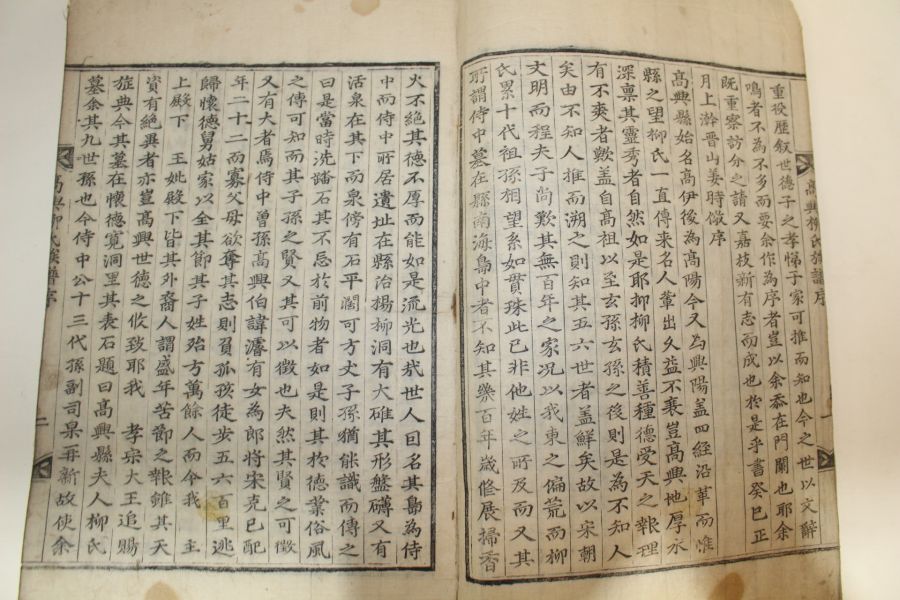 重役歷叙世德子之孝悌子家可推而知也今之世以文辭
鳴者不為不多而要余作為序者豈以余忝在門闌也耶余
旣重察訪分之請又嘉枝新有志而成也於是乎書癸巳正
月上澣晋山姜時儆序
高興縣始名高伊後為高陽今又為興陽盖四經沿革而惟
縣之望柳氏一直傳来名人輩出久益不衰豈高興地厚水
深禀其靈秀者自然如是耶抑柳氏積善種德愛天之報理
有不爽者歟盖自高祖以至玄孫玄孫之後則是為不知人
矣由不知人推而溯之則知其五六世者盖鮮矣故以宋朝
文明而程夫子尚歎其無百年之家况以我東之偏荒而柳
氏累十代祖孫相望系如貫珠此已非他姓之所及而又其
所謂侍中墓在縣南海島中者不知其㡬百年歲修展掃香
高興柳氏族譜序
火不絶其德不厚而能如是流光也㢤世人曰名其島為侍
中而侍中所居遺址在縣治楊柳洞有大碓其形盤礴又有
活泉在其下而泉傍有石平闊可方丈子孫猶能識而傳之
曰是當時洗 石其不忘於前物者如是則其於德業俗風
之傳可知而其子孫之賢又其可以徴也夫然其賢之可徴
又有大者焉侍中曾孫高興伯諱濯有女為郎將宋克己配
年二十二而寡父母欲奪其志則負孤孩徒步五六百里逃
歸懷德舅姑家以全其節其子姓殆方萬餘人而今我 主
上殿下 王妣殿下皆其外裔人謂盛年苦節之報雖其天
資有絶異者亦豈高興世德之攸致耶我 孝宗大王追賜
旌典今其墓在懷德寬洞里其表石題曰高興縣夫人柳氏
墓余其九世孫也今侍中公十三代孫副司果 新故使余
高興柳氏族譜序
二